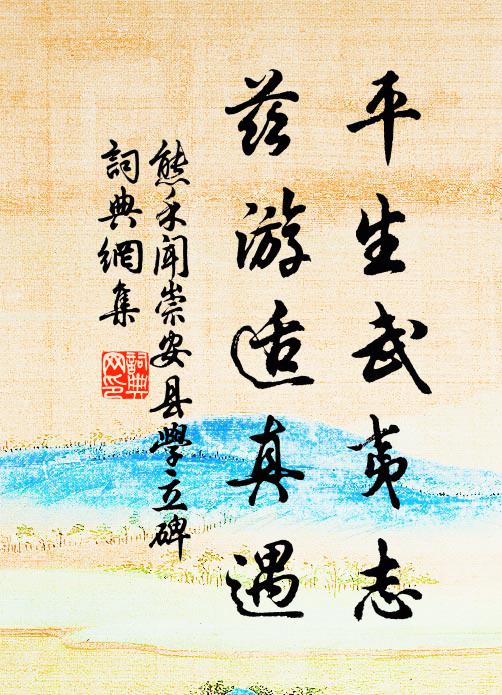 平生武夷志
兹游适真遇
熊禾闻崇安县學立碑
詞典網集
詞典网印